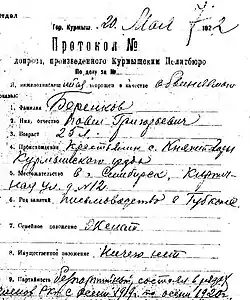 Гор. Курмыш. 20 Мая 1922
Протокол №
допроса, произведенного Курмышским Политбюро
По делу за №
в качестве обвиняемого
1. Фамилия
2. Имя, отчество Павел Григорьевич
3. Возраст 25 л.
4. Происхождение Крестьянин с.
Курмышского уезда
5. Местожительство в г. Симбирск,
ул. д. №12
6. Род занятий
7. Семейное положение Женат
8. Имущественное положение Ничего нет
9. Партийность Беспартийный, состоял в рядах
РКП с осени 1919 г. по осень 1920 г.